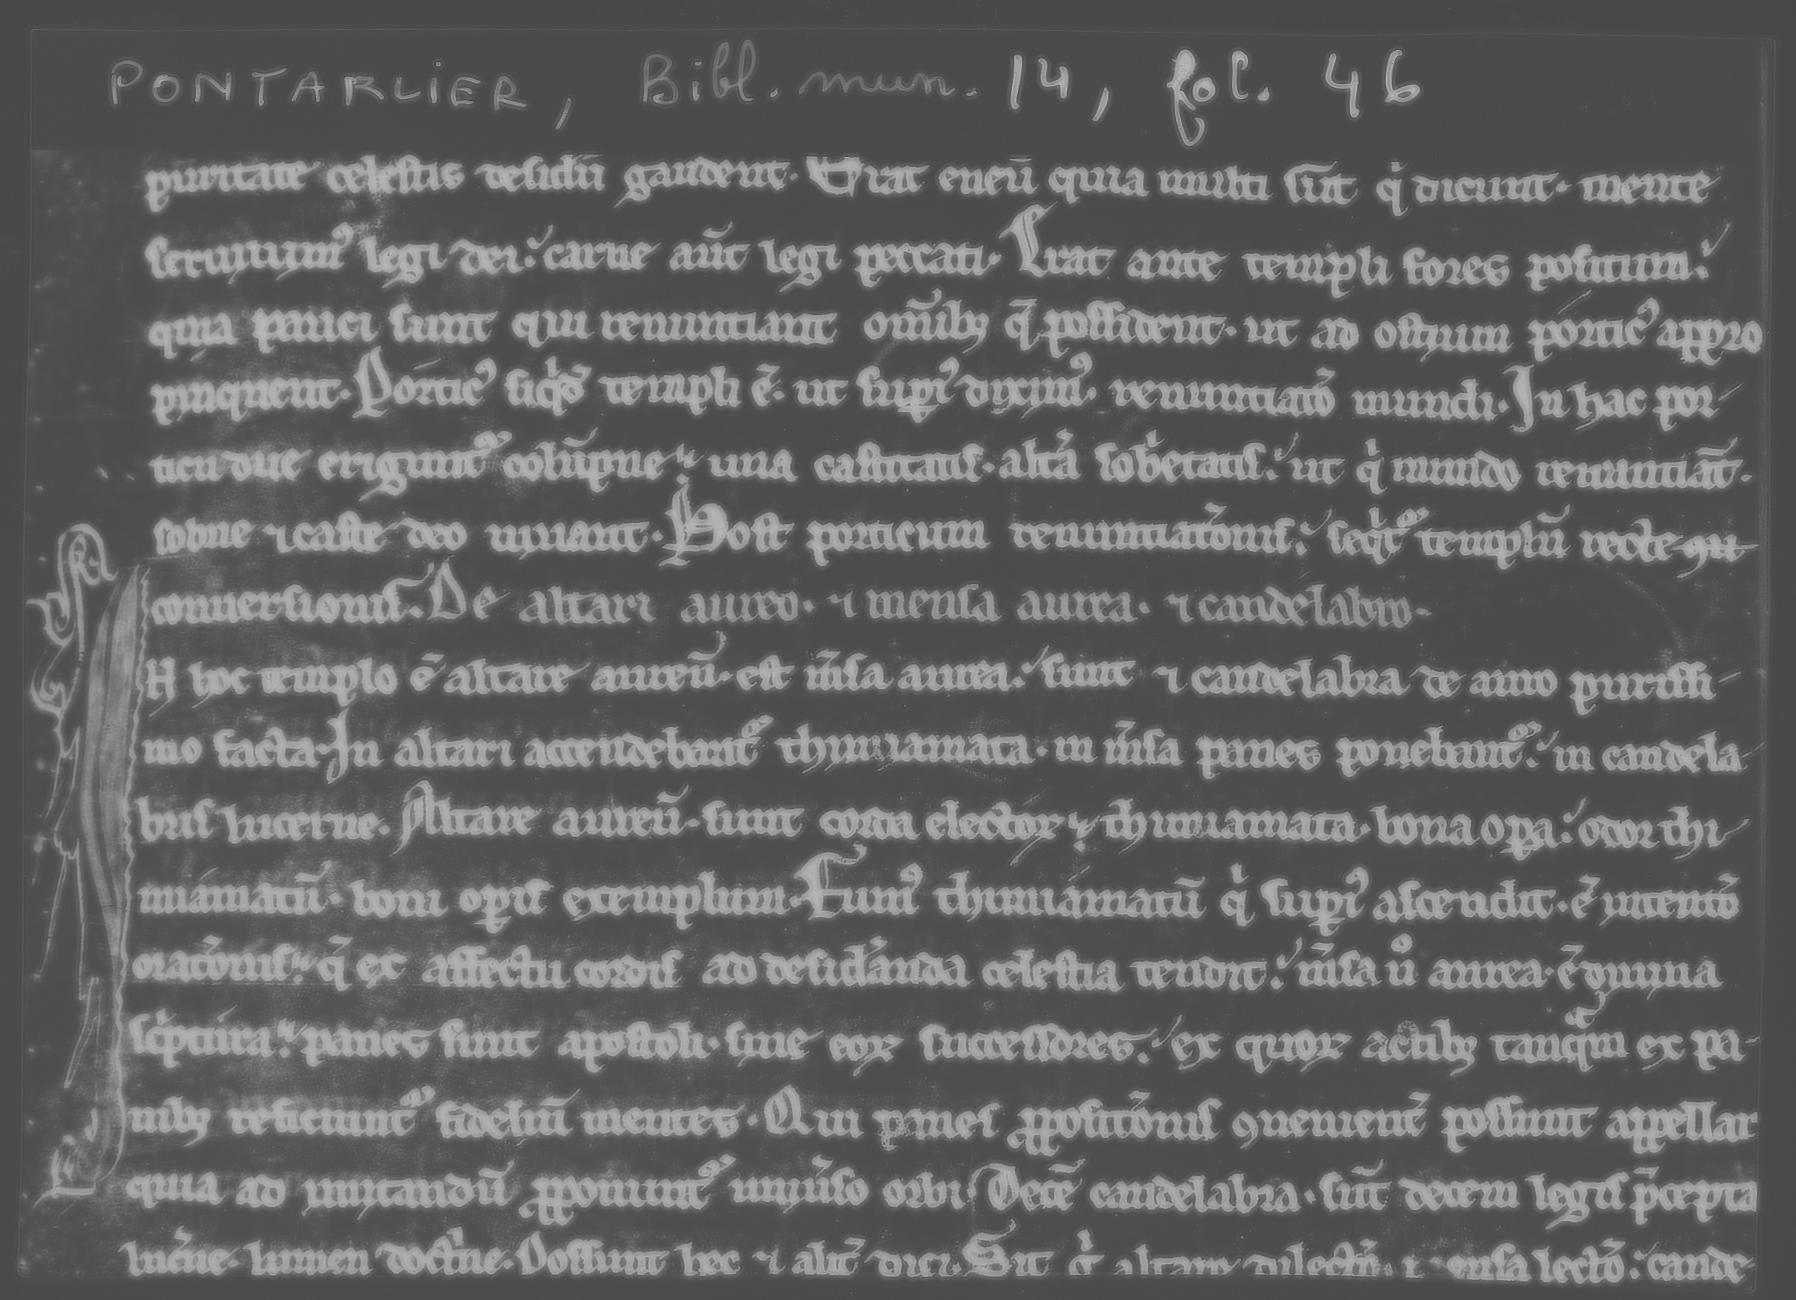 PONTARLIER, Bibl. mun. 14, fol. 46
puritate celestis desidii gaudent. Erat eneū quia multi sūt qi dicunt. mente
seruiuimꝰ legi dei: carne aūt legi peccati. Erat ante templi fores positum:
quia pauci sunt qui renuntiant omībꝫ q̄ possident. ut ad ostium porticꝰ appro
pinquent. Porticꝰ templi ē. ut supꝰ diximꝰ. renuntiatō mundi. In hac por
ticu due erigunt᷑ colūpne. una castitatis. alta sobetatis: ut qi mundo renuntiāt.
sobrie ⁊ caste deo uiuant. Post porticum renuntiatōnis: templū recte
conuersionis. De altari aureo. ⁊ mensa aurea. ⁊ candelabro.
N hoc templo ē altare aureū. est m̄sa aurea. sunt ⁊ candelabra de auro purissi
mo facta. In altari accendebant᷑ thimiamata. in m̄sa panes ponebant᷑: in candela
bris lucerne. Altare aureū. sunt corda electoꝝ. thimiamata. bona oꝑa: odor thi
miamatū. boni oꝑis exemplum. Fumꝰ thimiamatū qi supꝰ ascendit. ē intentō
oratōnis. q̄ ex affectu cordis ad desid̄anda celestia tendit: m̄sa uͦ aurea. ē diuina
sc̄ptura. panes sunt apostoli. siue eoꝝ successores: ex quoꝝ actibꝫ tanq̄m ex pa
nibꝫ reficiunt᷑ fideliū mentes. Qui panes ꝓpositōnis ꝯuenient᷑ possunt appellar
quia ad imitandū ꝓponunt᷑ uniu̅so orbi. Decē candelabra. sūt decem legis p̄cepta
luc̄ne. lumen doct̄ne. Possunt hec ⁊ alit᷑ dici. Sit altare dilectō. lectō: cande